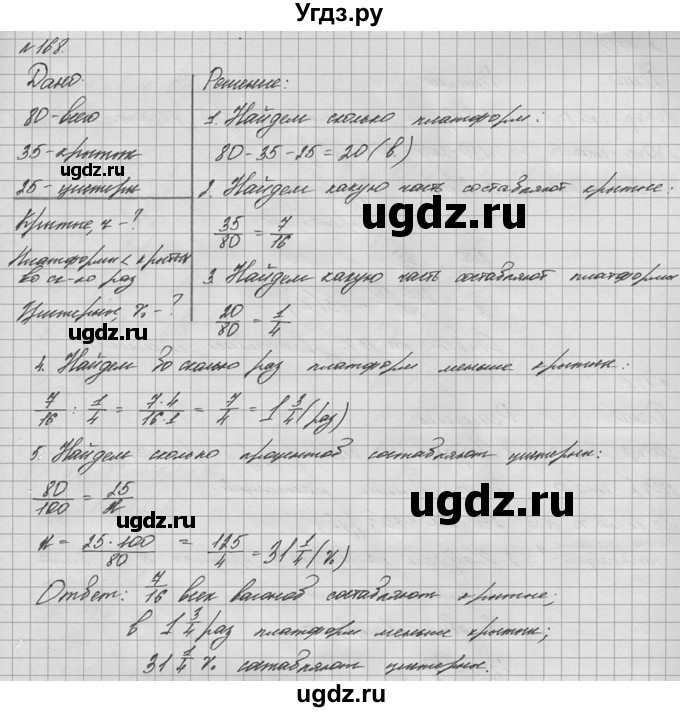 Угдз.ру
№168.
Дано:
80-всего
35-крытых
25-цистерн
Крытые, ч-?
Платформ < крытых
во ск-ко раз
Цистерны, %-?
Решение:
1. Найдем сколько платформ:
80-35-25=20(в.)
2. Найдем какую часть составляют крытые:
35/80 = 7/16
3. Найдем какую часть составляют платформы
20/80 = 1/4
4. Найдем во сколько раз платформ меньше крытых:
7/16 : 1/4 = 7·4/16·1 = 7/4 = 1 3/4 (раз)
5. Найдем сколько процентов составляют цистерны:
80/100 = 25/x
x = 25·100/80 = 125/4 = 31 1/4 (%)
Ответ: 7/16 всех вагонов составляют крытые;
в 1 3/4 раз платформ меньше крытых;
31 1/4 % составляют цистерны.
ugdz.ru
ugdz.ru
ugdz.ru
ugdz.ru
ugdz.ru
ugdz.ru
ugdz.ru
ugdz.ru
ugdz.ru